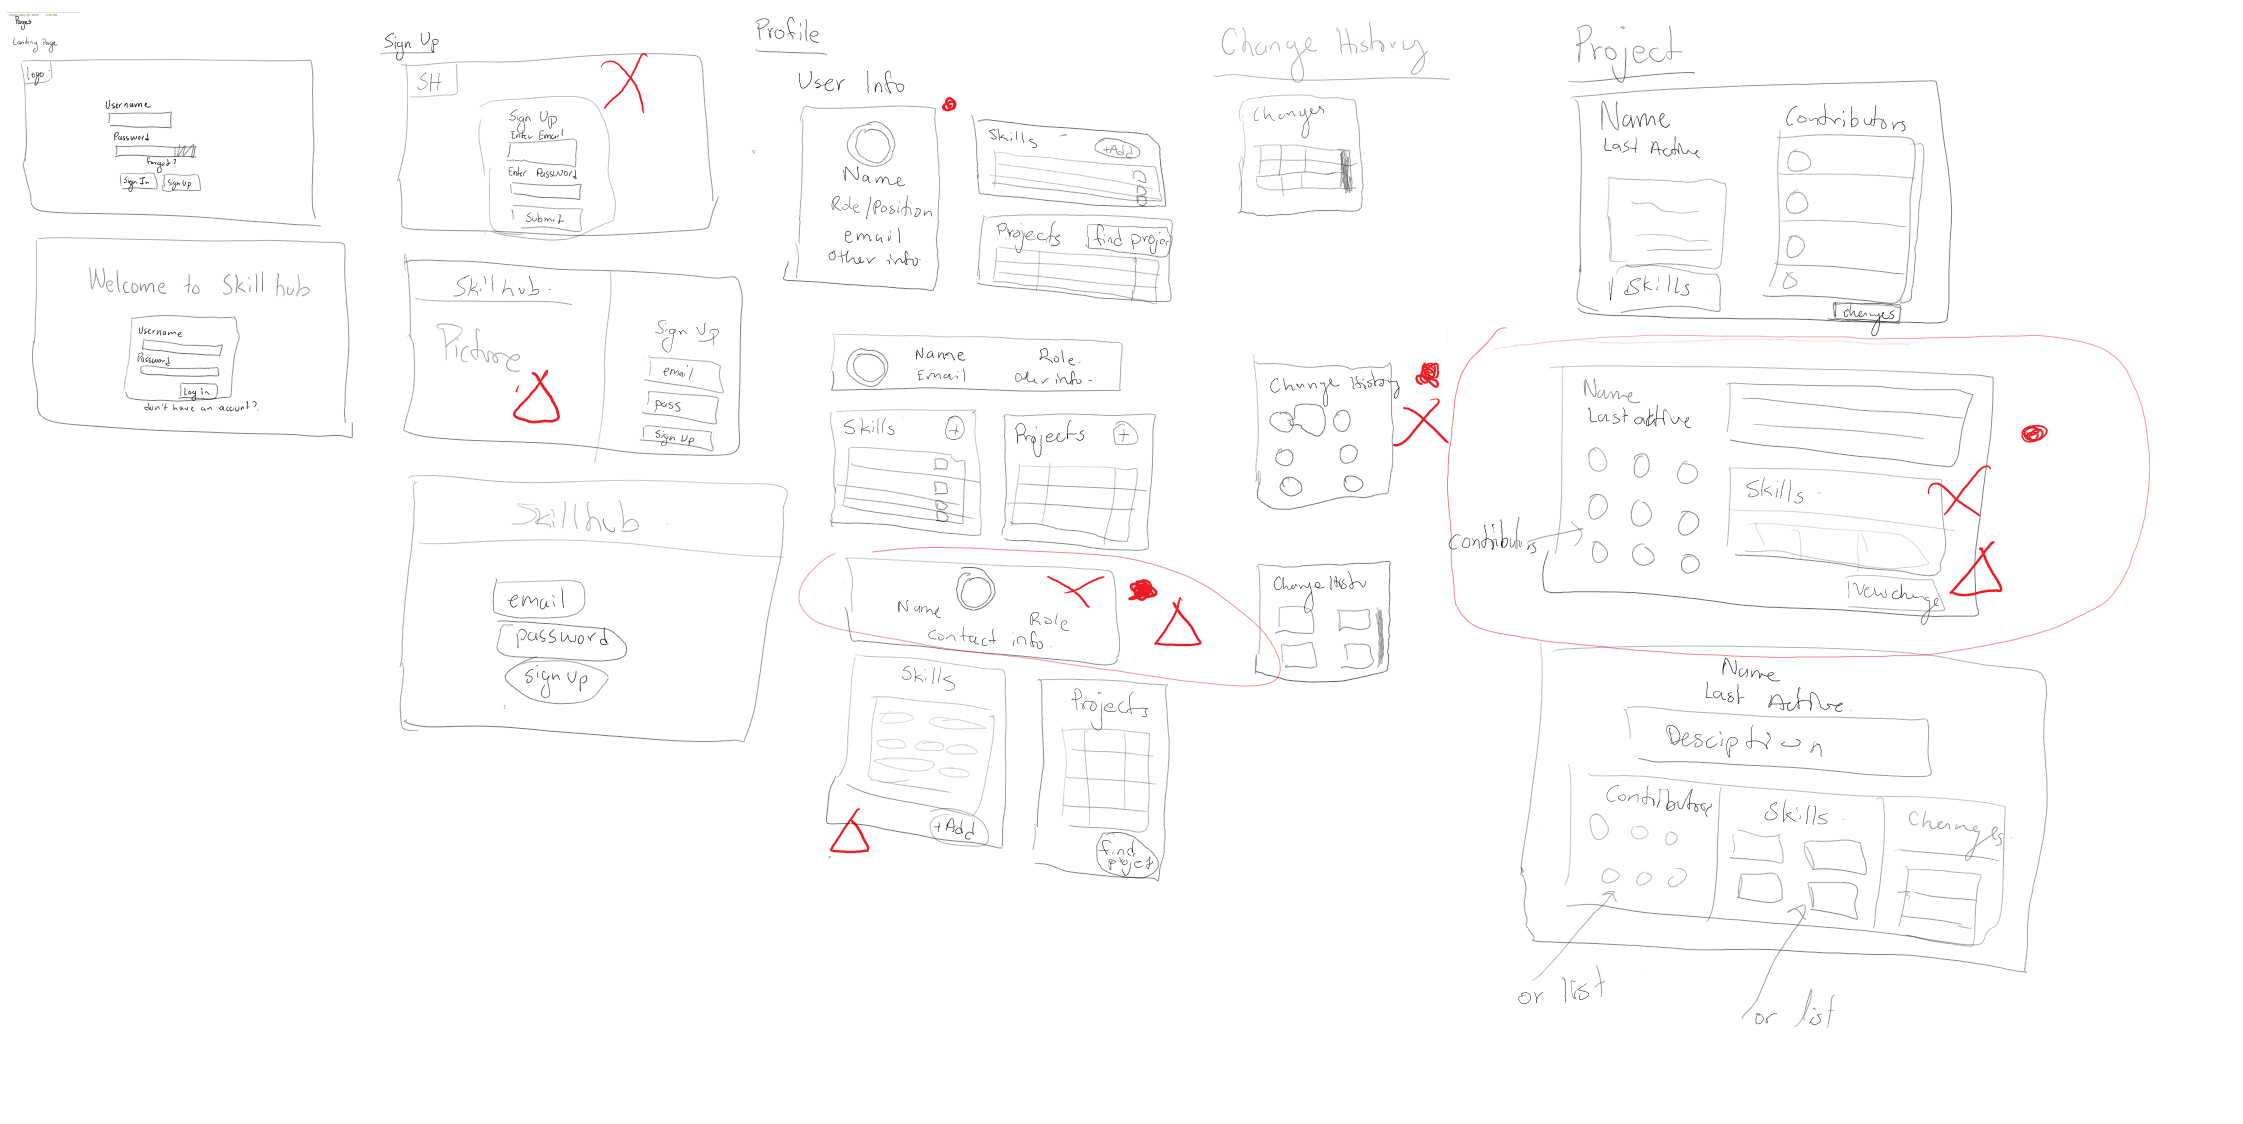 Pages
Landing Page
logo
Username
Password
forgot?
Sign In
Sign Up
Welcome to Skill hub
Username
Password
Log in
don't have an acount?
Sign Up
SH
Sign Up
Enter Email
Enter Password
Submit
Skill hub
Picture
Sign Up
email
pass
Sign Up
Skillhub
email
password
sign up
Profile
User Info
Name
Role/Position
email
Other info
Skills
+Add
Projects
find projec
Name
Role
Email
Other info
Skills
+
Projects
+
Name
Role
contact info
Skills
+Add
Projects
find
project
Change History
Changes
Change History
Change Histr
Project
Name
Last Active
Contributors
Skills
changes
Name
Last active
Contributors
Skills
View change
Name
Last Active
Desciption
Contributors
Skills
Changes
or list
or list